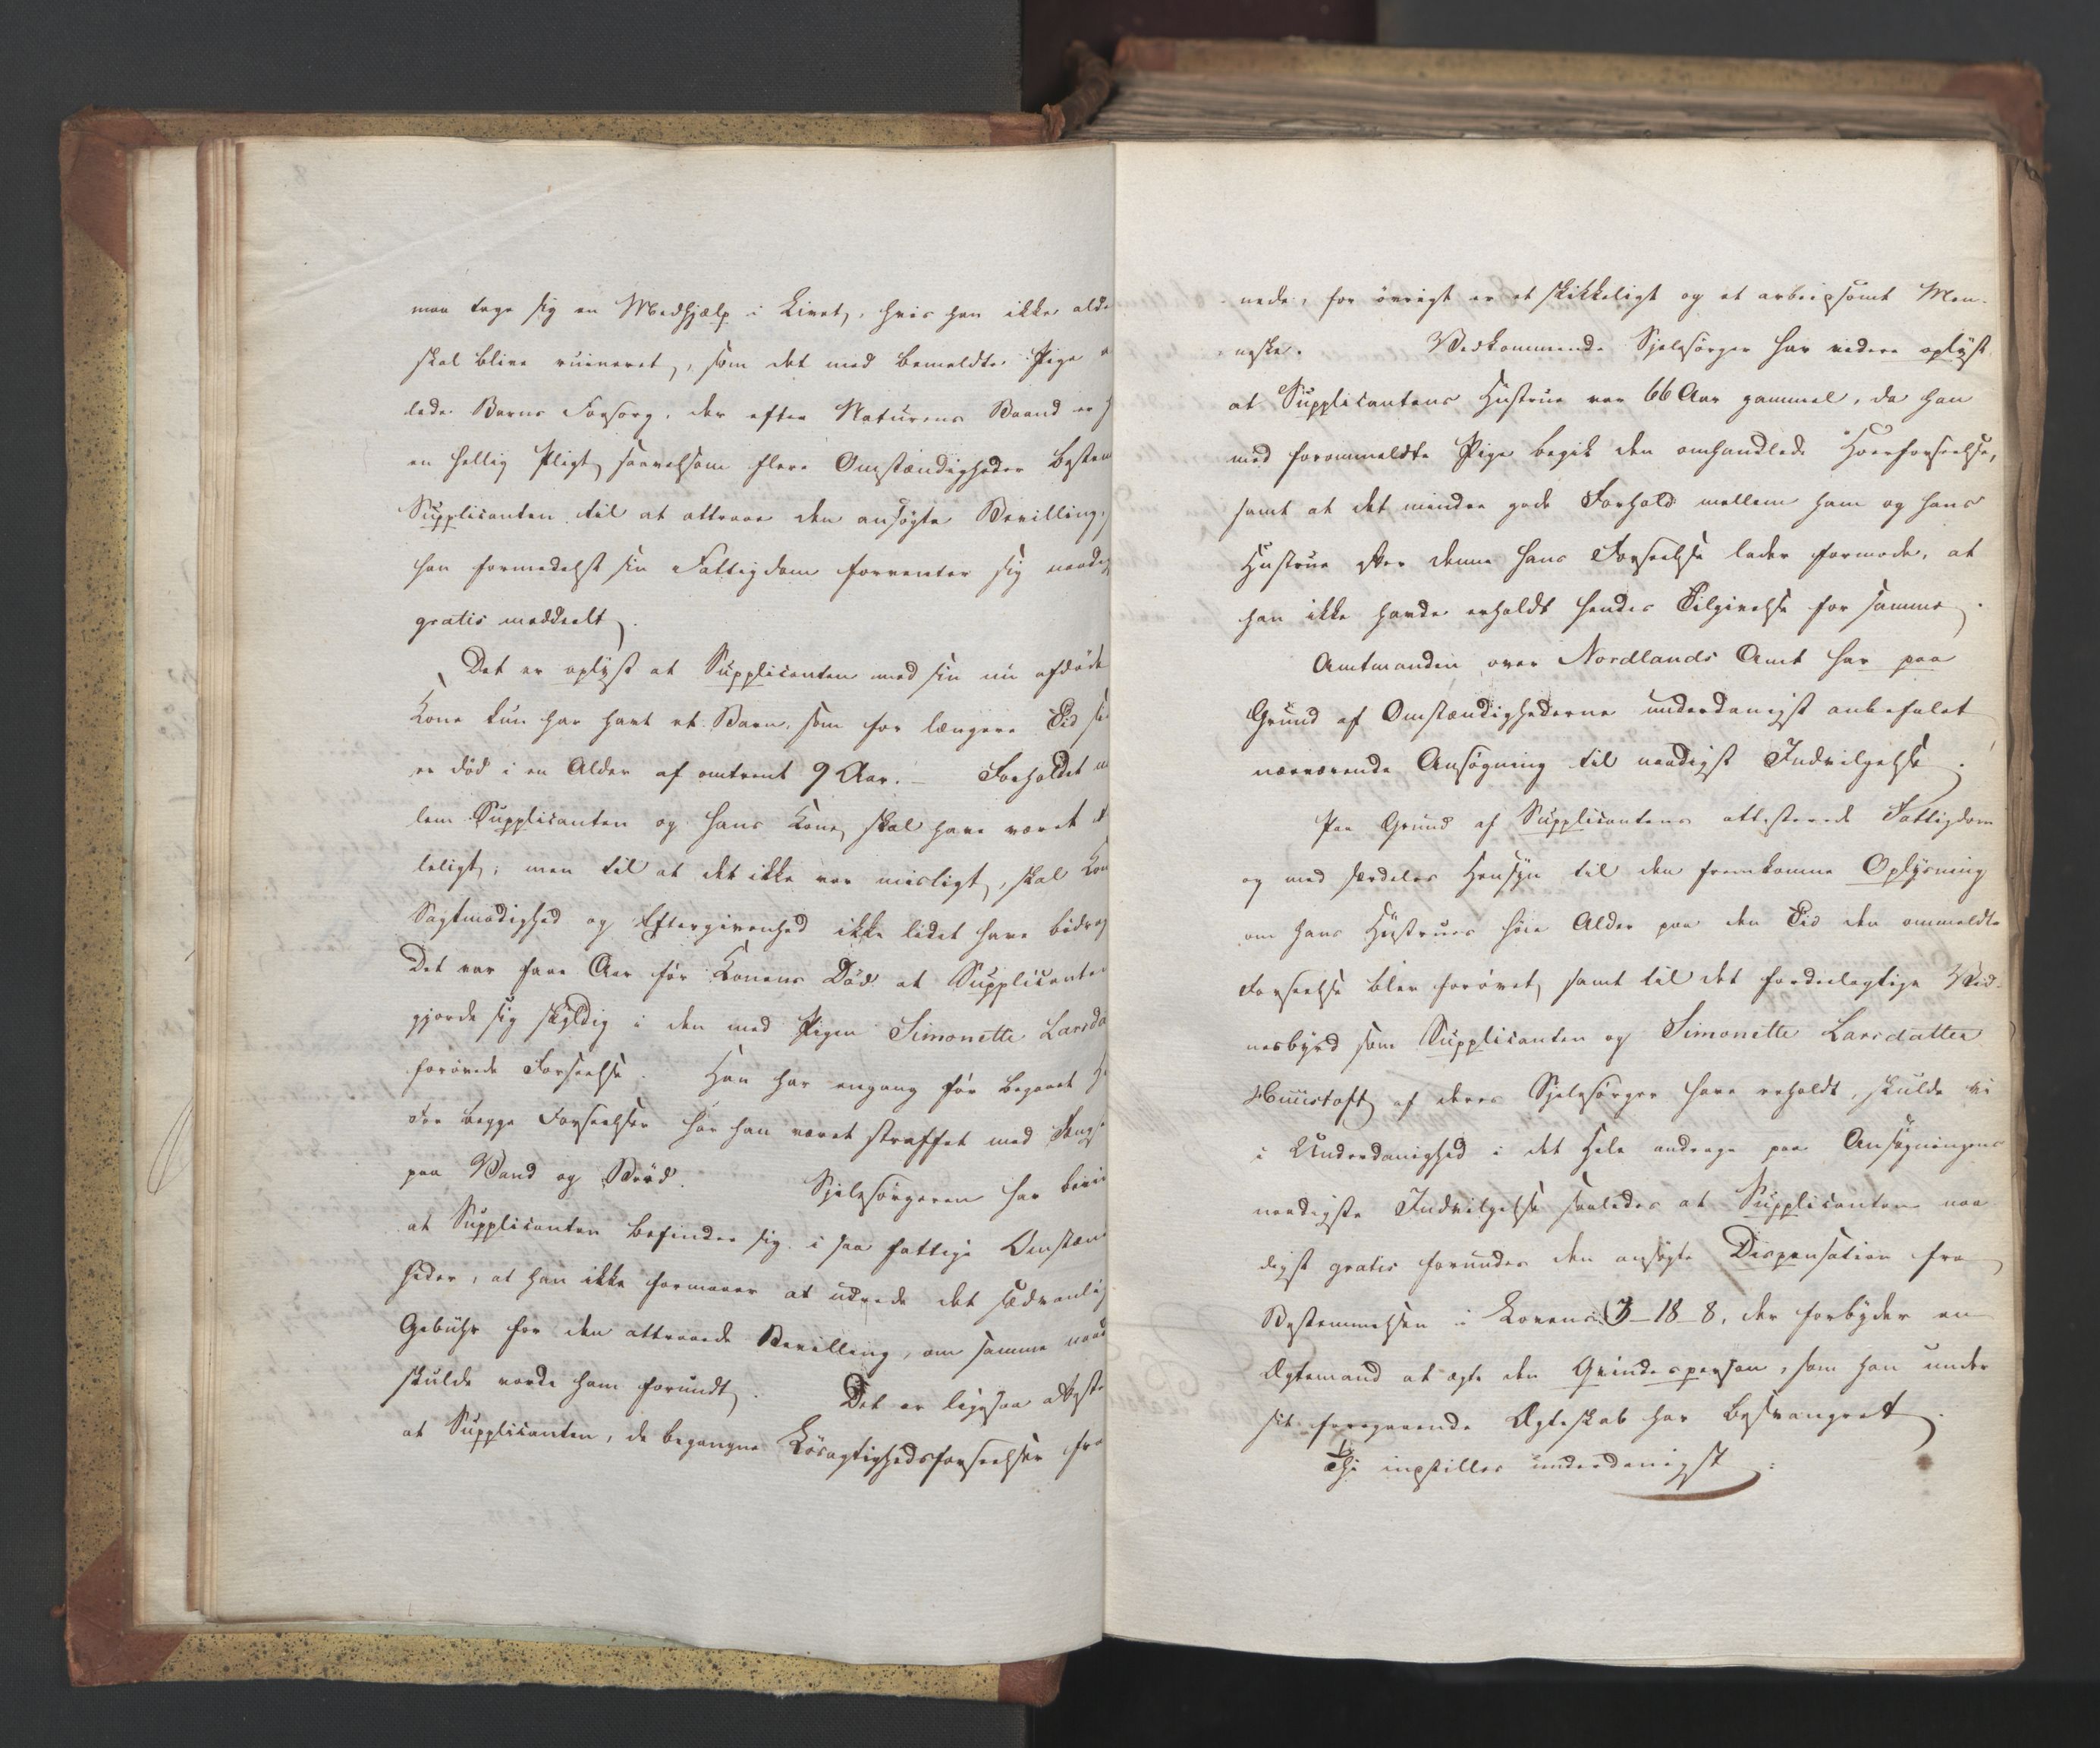 maa tage sig en Medhjælp i Livet, hvis han ikke alde
skal blive ruineret, som det med bemeldte Pige a
lede Barns Forsorg, der efter Naturens Baand er h
en hellig Pligt, saavelsom flere Omstændigheder bestem
Supplicanten til at attraae den ansøgte Bevilling,
han formedelst sin Fattigdom forventer sig naadig
gratis meddeelt.
Det er oplyst at Supplicanten med sin nu afdøde
Kone kun har havt et Barn, som for længere Tid si
er død i en Alder af omtrent 9 Aar. – Forholdet m
lem Supplicanten og hans Kone, skal have været
leligt; men til at det ikke var misligt, skal Kon
Sagtmodighed og Eftergivenhed ikke lidet have bidrag
Det var faae Aar før Konens Død at Supplicanten
gjorde sig skyldig i den med Pigen Simonette Larsda
forøvede Forseelse. Han har engang før begaaet H
For begge Forseelser har han været straffet med Fængs
paa Vand og Brød. Sjelesørgeren har bevi
at Supplicanten befinder sig i saa fattige Omstæn
heder, at han ikke formaaer at udrede det sædvanlig
Gebühr for den attraaede Bevilling, om samme naad
skulde vorde ham forundt. Det er ligesaa attest
at Supplicanten, de begangne Løsagtighedsforseelser fra
nede, for øvrigt er et skikkeligt og et arbeidsomt Men-
neske. Vedkommende Sjelesørger har videre oplyst
at Supplicantens Hustrue var 66 Aar gammel, da han
med forommeldte Pige begik den omhandlede Hoerforseelse,
samt at det mindre gode Forhold mellem ham og hans
Hustrue efter denne hans Forseelse lader formode, at
han ikke havde erholdt hendes Tilgivelse for samme.
Amtmanden over Nordlands Amt har paa
Grund af Omstændighederne underdanigst anbefalet
nærværende Ansøgning til naadigst Indvilgelse.
Paa Grund af Supplicantens attesterede Fattigdom
og med særdeles Hensyn til den fremkomne Oplysning
om hans Hustrues høie Alder paa den Tid den ommeldte
Forseelse blev forøvet, samt til det fordeelagtige Vid-
nesbyrd som Supplicanten og Simonette Larsdatter
af deres Sjelesørger have erholdt, skulde vi
i Underdanighed i det Hele andrage paa Ansøgningens
naadigste Indvilgelse saaledes at Supplicanten naa
digst gratis forundes den ansøgte Dispensation fra
Bestemmelsen i Lovens 3–18–8, der forbyder en
Ægtemand at ægte den Qvindesperson, som han under
sit foregaaende Ægteskab har besvangret.
Thi indstilles underdanigst: